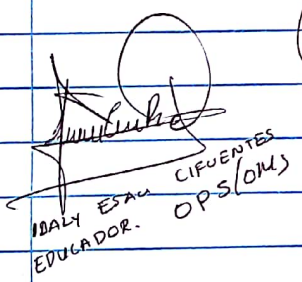 IDALY ESAU CIFUENTES
EDUCADOR. OPS/OMS